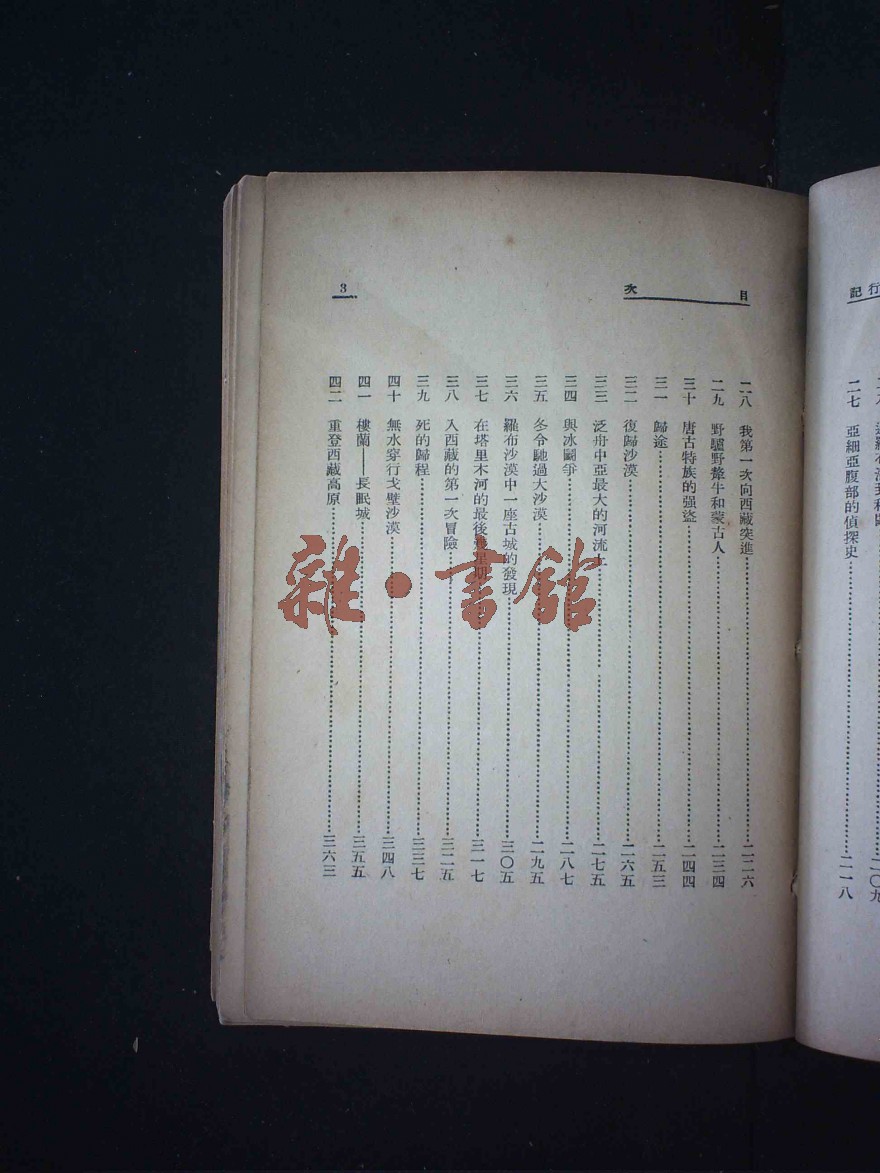 目次
3
二八 我第一次向西藏突進……二二六
二九 野驢野犛牛和蒙古人……二三四
三十 唐古特族的强盜……二四四
三一 歸途……二五三
三二 復歸沙漠……二六五
三三 泛舟中亞最大的河流上……二七五
三四 與冰鬭爭……二八七
三五 冬令馳過大沙漠……二九五
三六 羅布沙漠中一座古城的發現……三〇五
三七 在塔里木河的最後幾星期……三一七
三八 入西藏的第一次冒險……三二五
三九 死的歸程……三三七
四十 無水穿行戈壁沙漠……三四八
四一 樓蘭——長眠城……三五五
四二 重登西藏高原……三六三
行記
二〇九
二七 亞細亞腹部的偵探史……二一八
雜·書館